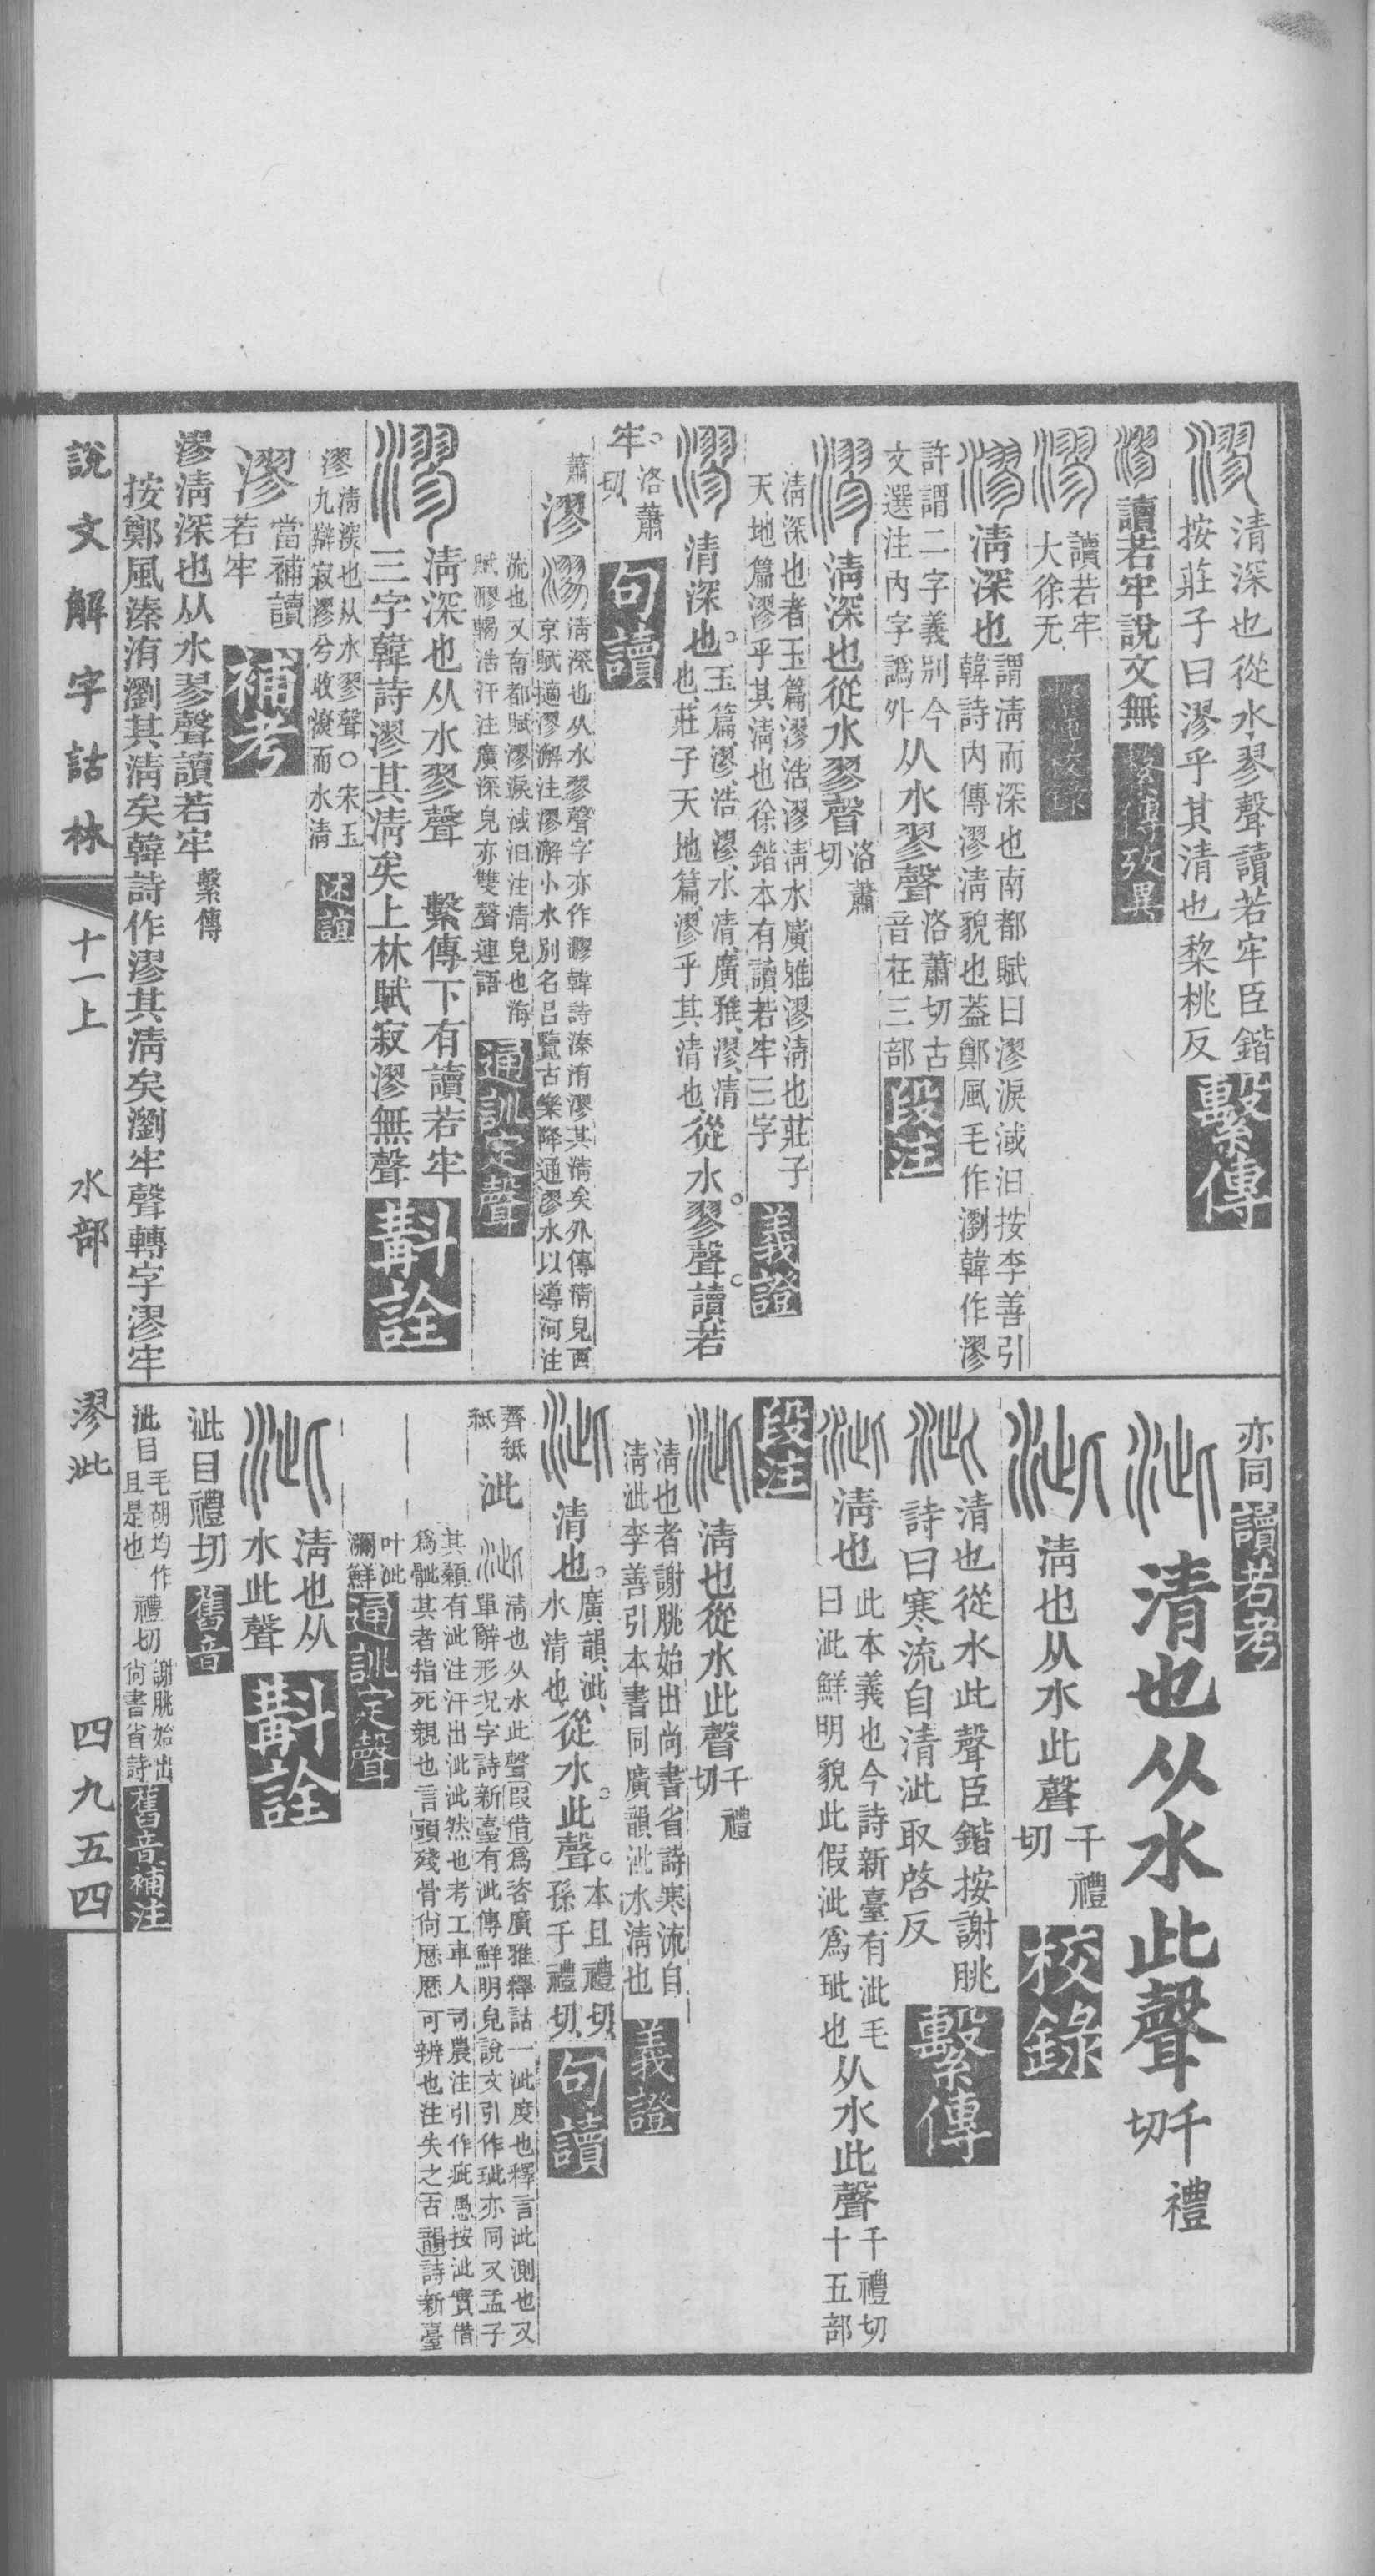 清深也從水翏聲讀若牢臣鍇
按莊子曰漻乎其清也棃桃反
繫傳
讀若牢說文無
繫傳攷異
讀若牢
大徐无
清深也
謂清而深也南都賦曰漻淚淢汨按李善引
韓詩內傳漻清貌也葢鄭風毛作瀏韓作漻
許謂二字義別今
文選注內字譌外
从水翏聲
洛蕭切古
音在三部
段注
清深也從水翏聲
洛蕭
切
清深也者玉篇漻浩漻清水廣雅漻清也莊子
天地篇漻乎其清也徐鍇本有讀若牢三字
義證
清深也。
玉篇漻浩漻水清廣雅漻清
也莊子天地篇漻乎其清也
從水。翏聲。讀若
牢。
洛蕭
切
句讀
蕭
漻
清深也从水翏聲字亦作㵳韓詩溱洧漻其清矣外傳清皃西
京賦擿漻澥注漻澥小水別名呂覽古樂降通漻水以導河注
流也又南都賦漻淚淢汨注清皃也海
賦㵳㵧浩汗注廣深皃亦雙聲連語
通訓定聲
清深也从水翏聲　繫傳下有讀若牢
三字韓詩漻其清矣上林賦寂漻無聲
斠詮
漻
清深也从水翏聲○宋玉
九辯寂漻兮收潦而水清
述誼
漻
當補讀
若牢
補考
漻清深也从水翏聲讀若牢
繫傳
按鄭風溱洧瀏其清矣韓詩作漻其清矣瀏牢聲轉字漻牢
亦同
讀若考
清也从水此聲
千禮
切
清也从水此聲
千禮
切
校錄
清也從水此聲臣鍇按謝朓
詩曰寒流自清泚取啓反
繫傳
清也
此本義也今詩新臺有泚毛
曰泚鮮明貌此假泚爲玼也
从水此聲
千禮切
十五部
段注
清也從水此聲
千禮
切
清也者謝朓始出尚書省詩寒流自
清泚李善引本書同廣韻泚水清也
義證
清也。
廣韻泚
水清也
從水。此聲。
本且禮切
孫千禮切
句讀
薺紙
紙
泚
清也从水此聲叚借爲咨廣雅釋詁一泚度也釋言泚測也又
單辭形況字詩新臺有泚傳鮮明皃說文引作玼亦同又孟子
其顙有泚注汗出泚泚然也考工車人司農注引作疵愚按泚實借
爲骴其者指死親也言頭殘骨尙歷歷可辨也注失之古韻詩新臺
叶泚
瀰鮮
通訓定聲
清也从
水此聲
斠詮
泚目禮切
舊音
泚目
毛胡均作
且是也
禮切
謝朓始出
尙書省詩
舊音補注
說文解字詁林
十一上
水部
漻泚
四九五四